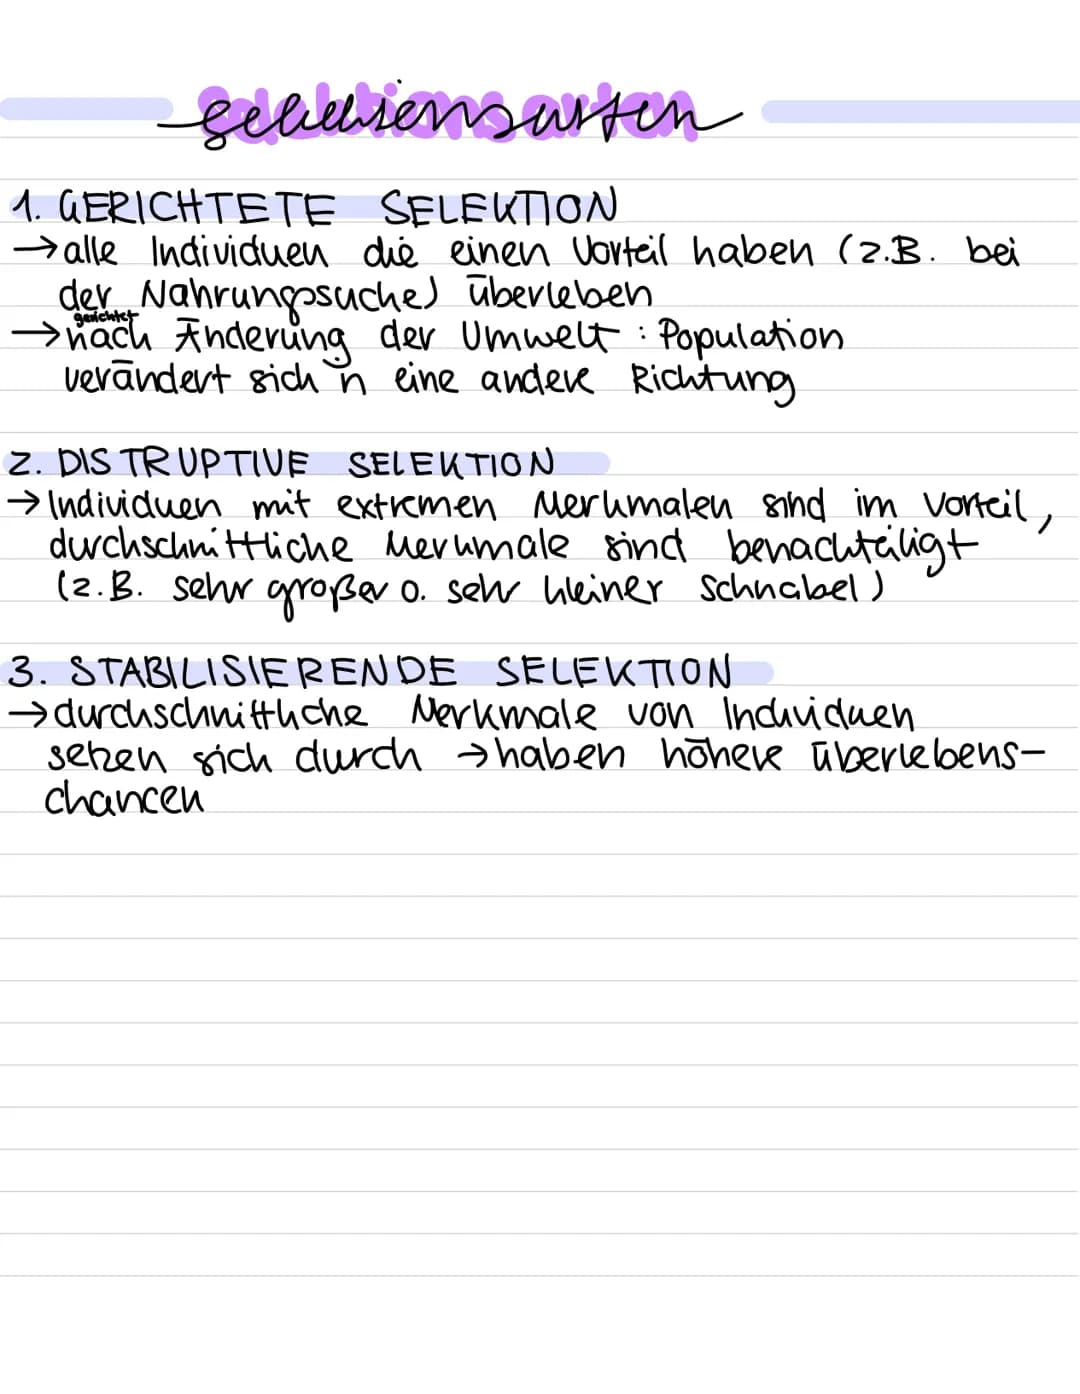 selektionsarten
1. GERICHTETE SELEKTION
→ alle Individuen die einen Vorteil haben (z.B. bei
der Nahrungssuche) überleben
gerichtet
→ nach Änderung der Umwelt : Population
verändert sich in eine andere Richtung
2. DISTRUPTIVE SELEKTION
→ Individuen mit extremen Merkmalen sind im Vorteil,
durchschnittliche Merkmale sind benachteiligt
(z.B. sehr großer o. sehr kleiner Schnabel)
3. STABILISIERENDE SELEKTION
→ durchschnittliche Merkmale von Individuen
setzen sich durch → haben höhere überlebens-
chancen